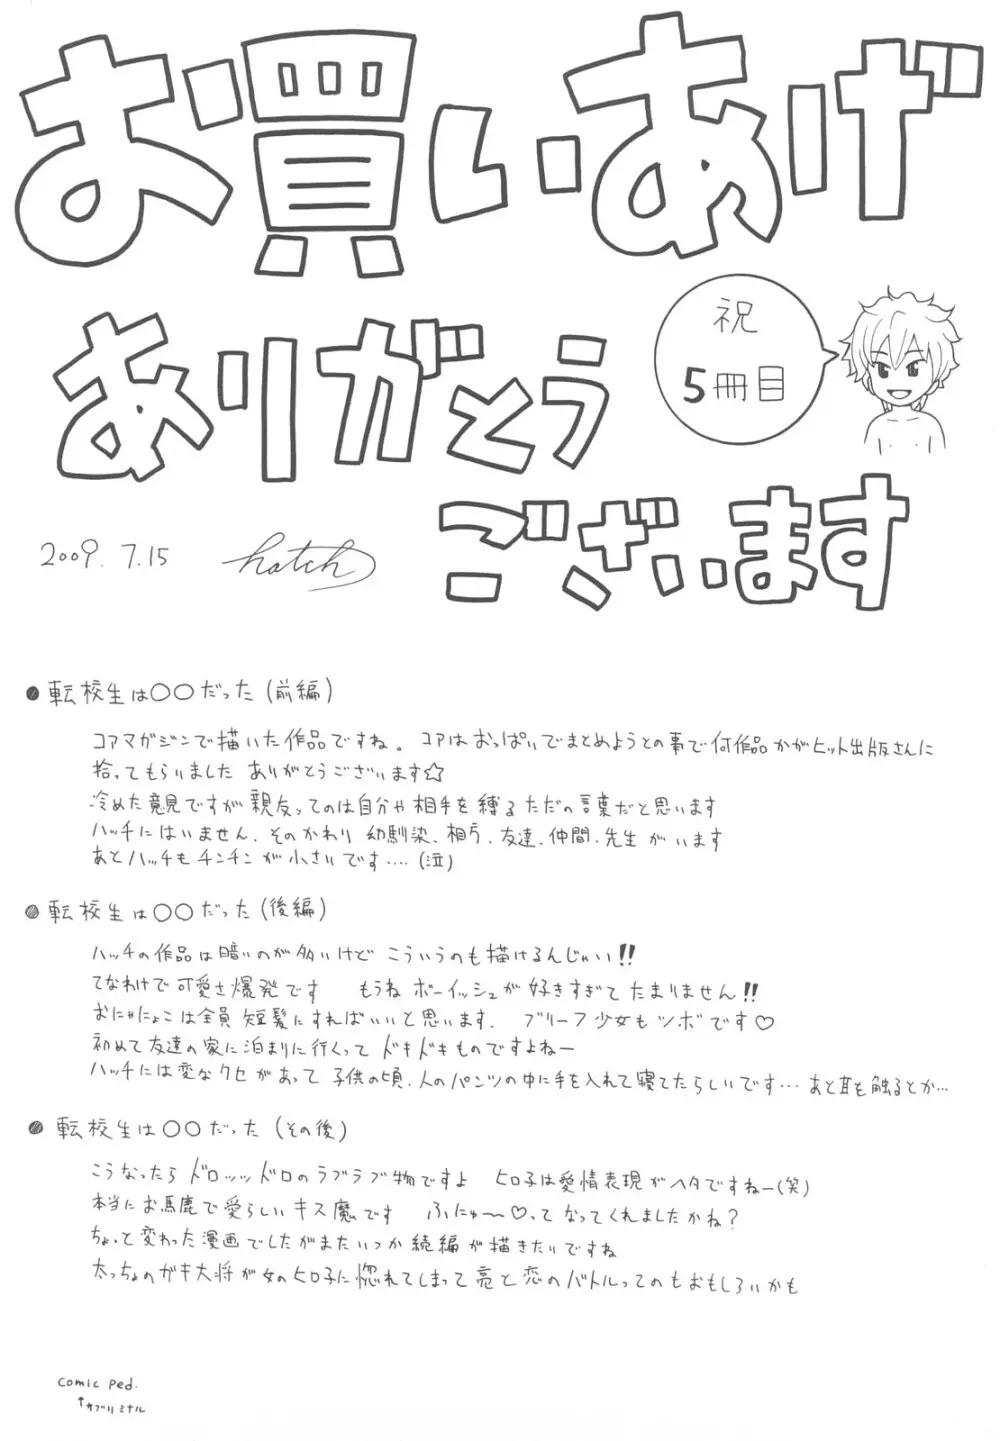 お買いあげ
ありがとう
ございます
祝
5冊目
2009. 7.15
hatch
●転校生は〇〇だった(前編)
コアマガジンで描いた作品ですね。コアはおっぱいでまとめようとの事で何作品かがヒット出版さんに
拾ってもらいました ありがとうございます☆
冷めた意見ですが親友ってのは自分や相手を縛るただの言葉だと思います
ハッチにはいません、そのかわり 幼馴染、相方、友達、仲間、先生がいます
あとハッチもチンチンが小さいです‥‥(泣)
●転校生は〇〇だった(後編)
ハッチの作品は暗いのが多いけど こういうのも描けるんじゃい!!
てなわけで可愛さ爆発です もうね ボーイッシュが好きすぎてたまりません!!
おにゃにょこは全員短髪にすればいいと思います。 ブリーフ少女もツボです♡
初めて友達の家に泊まりに行くって ドキドキものですよねー
ハッチには変なクセがあって 子供の頃、人のパンツの中に手を入れて寝てたらしいです‥‥ あと耳も触るとか‥
●転校生は〇〇だった(その後)
こうなったら ドロッッドロのラブラブ物ですよ ヒロ子は愛情表現がヘタですねー(笑)
本当にお馬鹿で愛らしいキス魔です ふにゅ〜♡ってなってくれましたかね?
ちょっと変わった漫画でしたがまたいつか続編が描きたいですね
太っちょのガキ大将が女のヒロ子に惚れてしまって亮と恋のバトルってのもおもしろいかも
Comic Ped.
↑サブリミナル